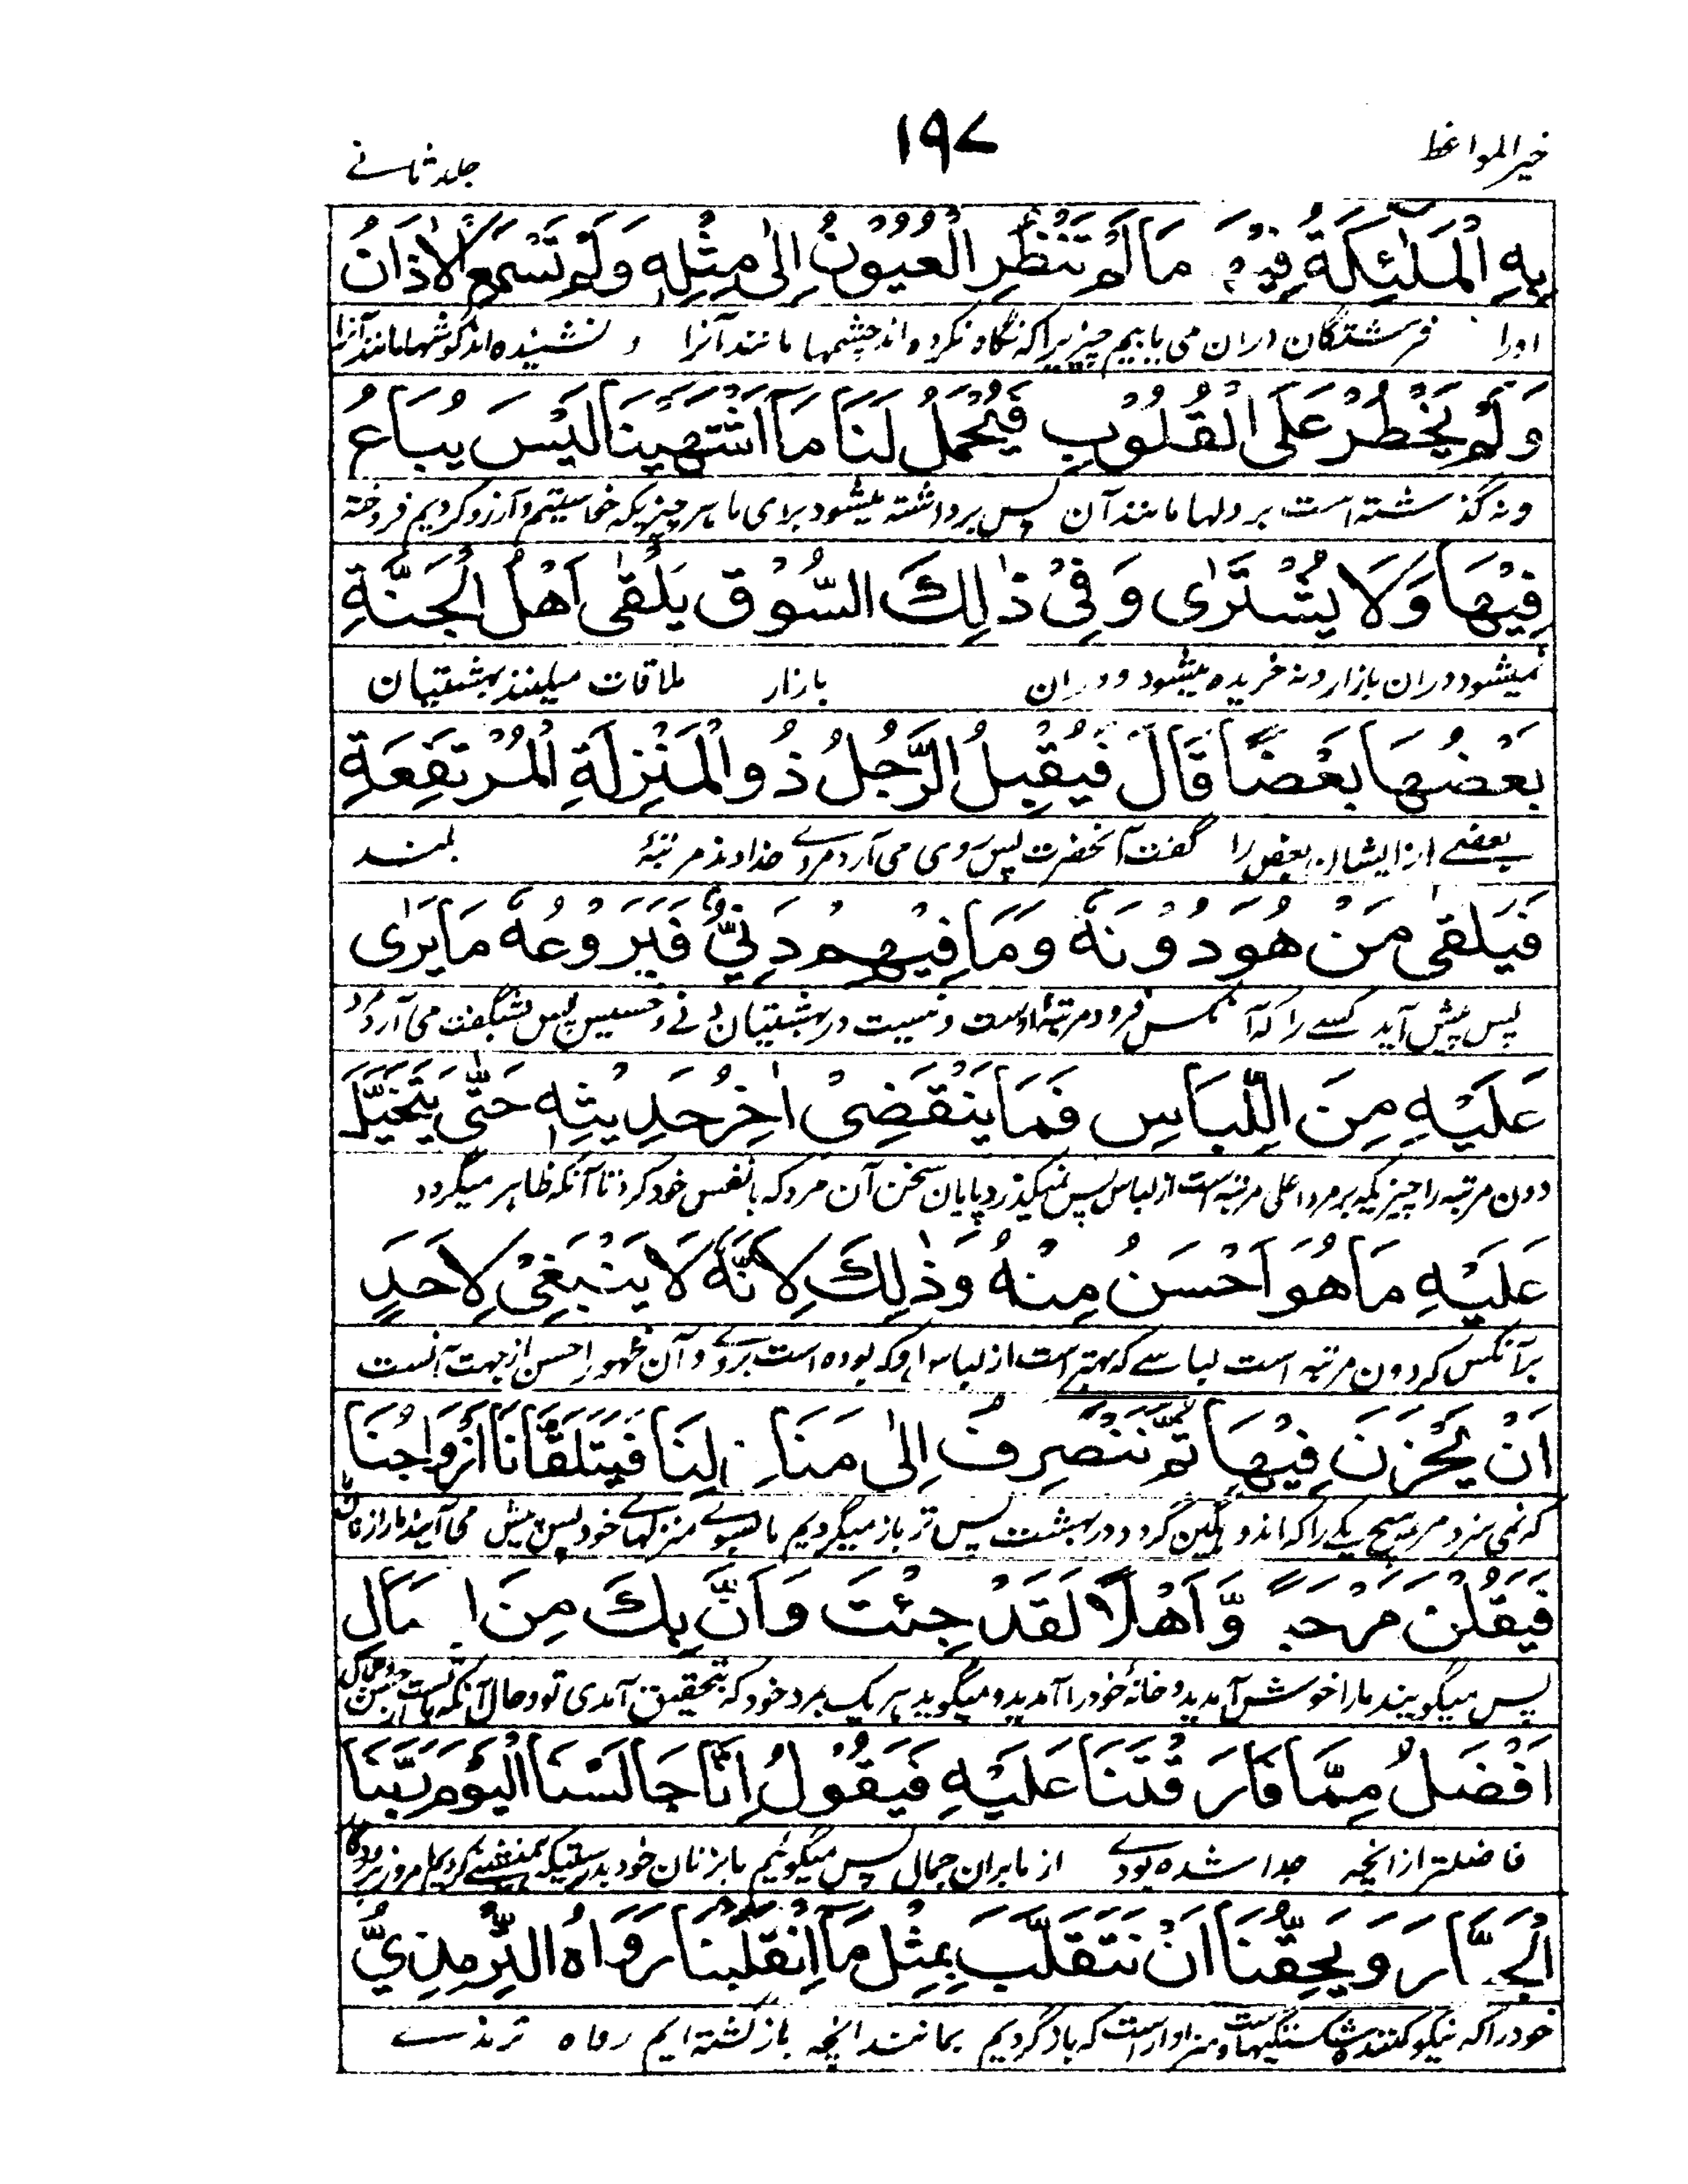 خیر المواعظ
۱۹۷
جلد ثانے
بِهِ الْمَلٰئِكَةُ فِيْهِ مَا لَمْ تَنْظُرِ الْعُيُوْنُ اِلٰى مِثْلِهٖ وَلَمْ تَسْمَعِ الْاٰذَانُ
اورا فرشتگان دران می یابیم چیزیرا که نگاه نکرده اند چشمها مانند آنرا و نشنیده اند گوشها مانند آنرا
وَلَمْ يَخْطُرْ عَلَى الْقُلُوْبِ فَيُحْمَلُ لَنَا مَا اشْتَهَيْنَا لَيْسَ يُبَاعُ
ونه گذشته است بر دلها مانند آن پس برداشته میشود برای ما هر چیزیکه خواستیم و آرزو کردیم فروخته
فِيْهَا وَلَا يُشْتَرٰى وَفِىْ ذٰلِكَ السُّوْقِ يَلْقٰى اَهْلُ الْجَنَّةِ
نمیشود دران بازار و نه خریده میشود و دران بازار ملاقات میکنند بهشتیان
بَعْضُهَا بَعْضًا قَالَ فَيُقْبِلُ الرَّجُلُ ذُو الْمَنْزِلَةِ الْمُرْتَفِعَةِ
بعضے ازایشان بعض را گفت آنحضرت پس روی می آرد مردے خداوند مرتبهٔ بلند
فَيَلْقٰى مَنْ هُوَ دُوْنَهٗ وَمَا فِيْهِمْ دَنِىٌّ فَيَرُوْعُهٗ مَا يَرٰى
پس پیش آید کسے را که آنکس فرود مرتبهٔ اوست و نیست در بهشتیان دنے و خسیس پس بشگفت می آرد
عَلَيْهِ مِنَ اللِّبَاسِ فَمَا يَنْقَضِىْ اٰخِرُ حَدِيْثِهٖ حَتّٰى يَتَخَيَّلَ
دون مرتبه را چیزیکه بر مرد اعلی مرتبه است از لباس پس نمیگذرد پایان سخن آن مرد که بانفس خود کرد تا آنکه ظاهر میگردد
عَلَيْهِ مَا هُوَ اَحْسَنُ مِنْهُ وَذٰلِكَ لِاَنَّهٗ لَا يَنْبَغِىْ لِاَحَدٍ
برآنکس که دون مرتبه است لباسے که بهتر است از لباس او که بوده است بروے و آن ظهور احسن از جهت آنست
اَنْ يَحْزَنَ فِيْهَا ثُمَّ نَنْصَرِفُ اِلٰى مَنَازِلِنَا فَيَتَلَقَّانَا اَزْوَاجُنَا
که نمی سزد مر هیچ یکے را که اندوهگین گردد در بهشت پس تر باز میگردیم ما بسوے منزلهاے خود پس پیش می آیند مارا زنان
فَيَقُلْنَ مَرْحَبًا وَّاَهْلًا لَقَدْ جِئْتَ وَاَنَّ بِكَ مِنَ الْجَمَالِ
پس میگویند مارا خوش آمدید و خانهٔ خود را آمدید و میگوید هر یک بمرد خود که بتحقیق آمدی تو و حال آنکه
اَفْضَلُ مِمَّا فَارَقْتَنَا عَلَيْهِ فَيَقُوْلُ اِنَّا جَالَسْنَا الْيَوْمَ رَبَّنَا
فاضلتر ازانچه جدا شده بودے از ما بران جمالی پس میگوئیم ما بزنان خود بدرستیکه همنشینی کردیم امروز
الْجَبَّارَ وَيَحِقُّنَا اَنْ نَنْقَلِبَ بِمِثْلِ مَا انْقَلَبْنَا رَوَاهُ التِّرْمِذِىُّ
خود را که نیکو کننده شکستگیهاست و سزاوار است که بازگردیم بمانند انچه بازگشته ایم رواه ترمذے